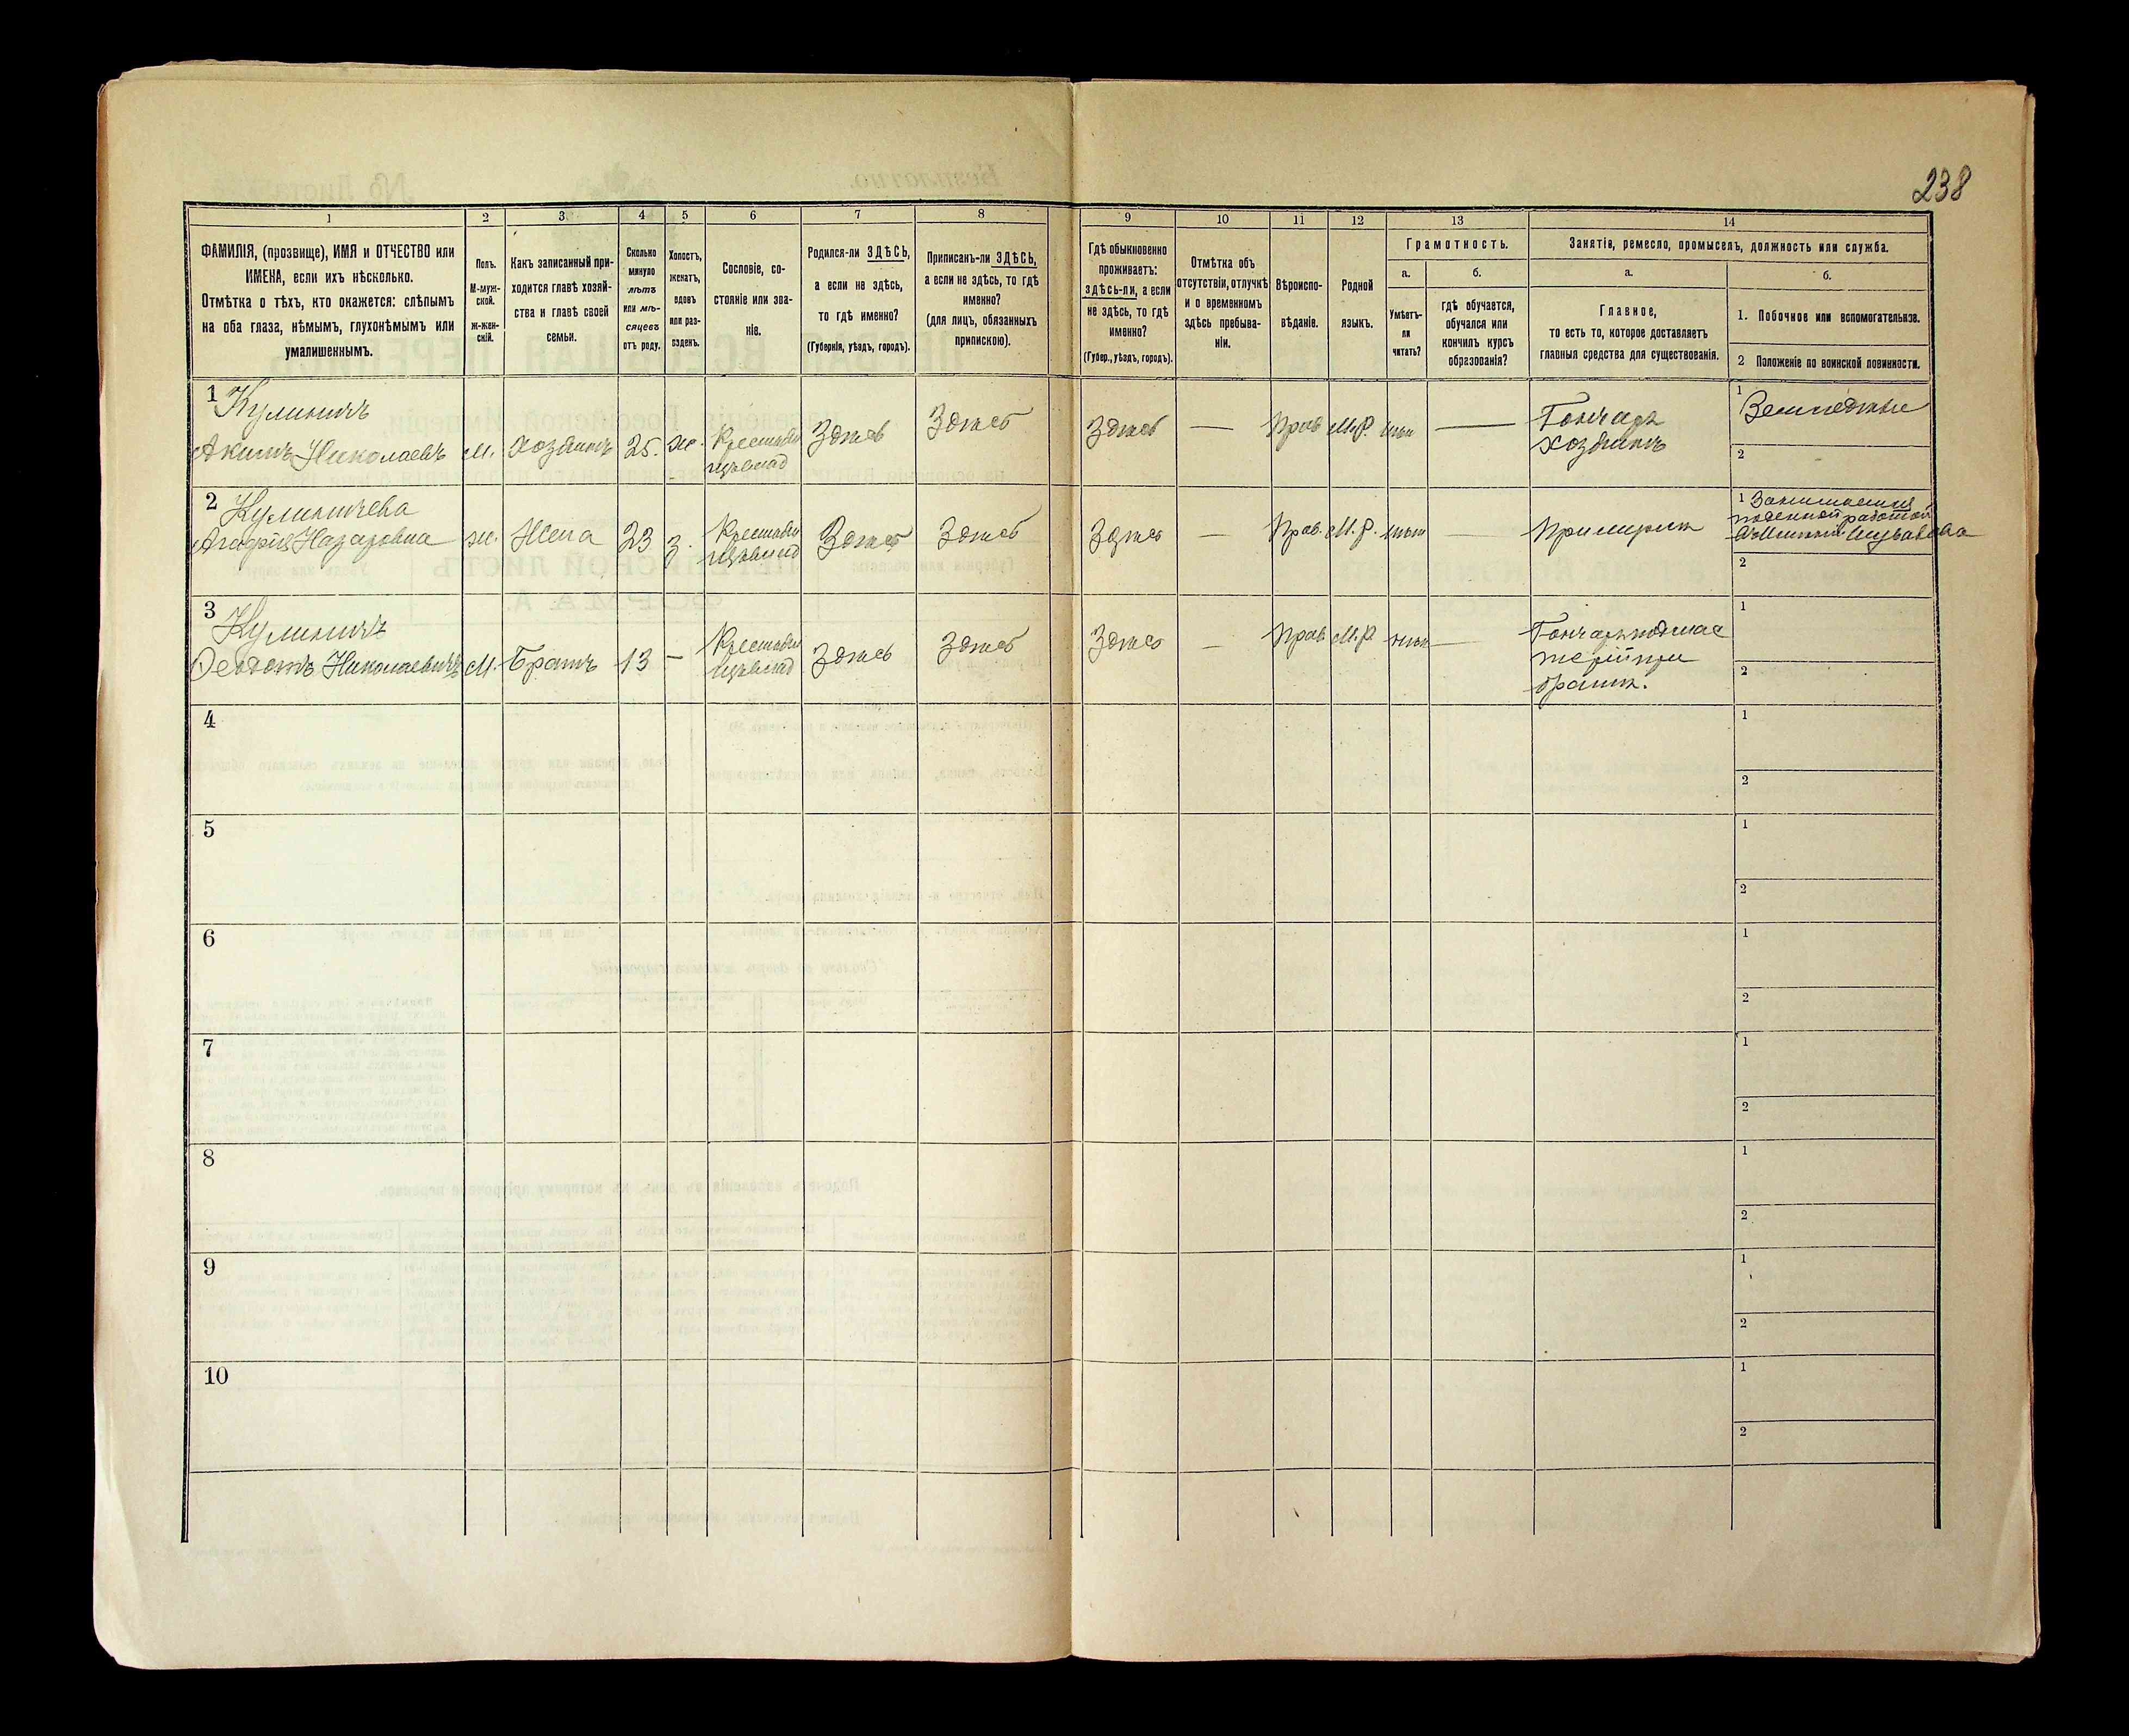 238
1 2 3 4 5 6 7 8 9 10 11 12 13 14
ФАМИЛІЯ, (прозвище), ИМЯ и ОТЧЕСТВО или
ИМЕНА, если ихъ нѣсколько.
Отмѣтка о тѣхъ, кто окажется: слѣпымъ
на оба глаза, нѣмымъ, глухонѣмымъ или
умалишеннымъ.
Полъ.
М-муж-
ской.
Ж-жен-
скій.
Какъ записанный при-
ходится главѣ хозяй-
ства и главѣ своей
семьи.
Сколько
минуло
лѣтъ
или мѣ-
сяцевъ
отъ роду.
Холостъ,
женатъ,
вдовъ
или раз-
веденъ.
Сословіе, со-
стояніе или зва-
ніе.
Родился-ли ЗДѢСЬ,
а если не здѣсь,
то гдѣ именно?
(Губернія, уѣздъ, городъ).
Приписанъ-ли ЗДѢСЬ,
а если не здѣсь, то гдѣ
именно?
(для лицъ, обязанныхъ
припискою).
Гдѣ обыкновенно
проживаетъ:
здѣсь-ли, а если
не здѣсь, то гдѣ
именно?
(Губер., уѣздъ, городъ).
Отмѣтка объ
отсутствіи, отлучкѣ
и о временномъ
здѣсь пребыва-
ніи.
Вѣроиспо-
вѣданіе.
Родной
языкъ.
Грамотность.
а.
Умѣетъ-
ли
читать?
б.
гдѣ обучается,
обучался или
кончилъ курсъ
образованія?
Занятія, ремесло, промыселъ, должность или служба.
а.
Главное,
то есть то, которое доставляетъ
главныя средства для существованія.
б.
1. Побочное или вспомогательное.
2 Положеніе по воинской повинности.
1 Кулиничъ
Акимъ Николаевъ
М.
Хозяинъ
25.
ж.
Здѣсь
Здѣсь
Здѣсь
—
Прав
М.Р.
нѣт
—
Гончаръ
хозяинъ
1
Земледѣліе
2
2 Кулиничева
Агафія Назаровна
ж.
Жена
23
З.
Здѣсь
Здѣсь
Здѣсь
—
Прав.
М.Р.
нѣт
—
При мужѣ
1 Занимается
поденной работой
2
3 Кулиничъ
Ѳеодотъ Николаевичъ
М.
Братъ
13
—
Здѣсь
Здѣсь
Здѣсь
—
Прав
М.Р
нѣт
—
Гончаръ подмас
терій при
братѣ.
1
2
4
1
2
5
1
2
6
1
2
7
1
2
8
1
2
9
1
2
10
1
2